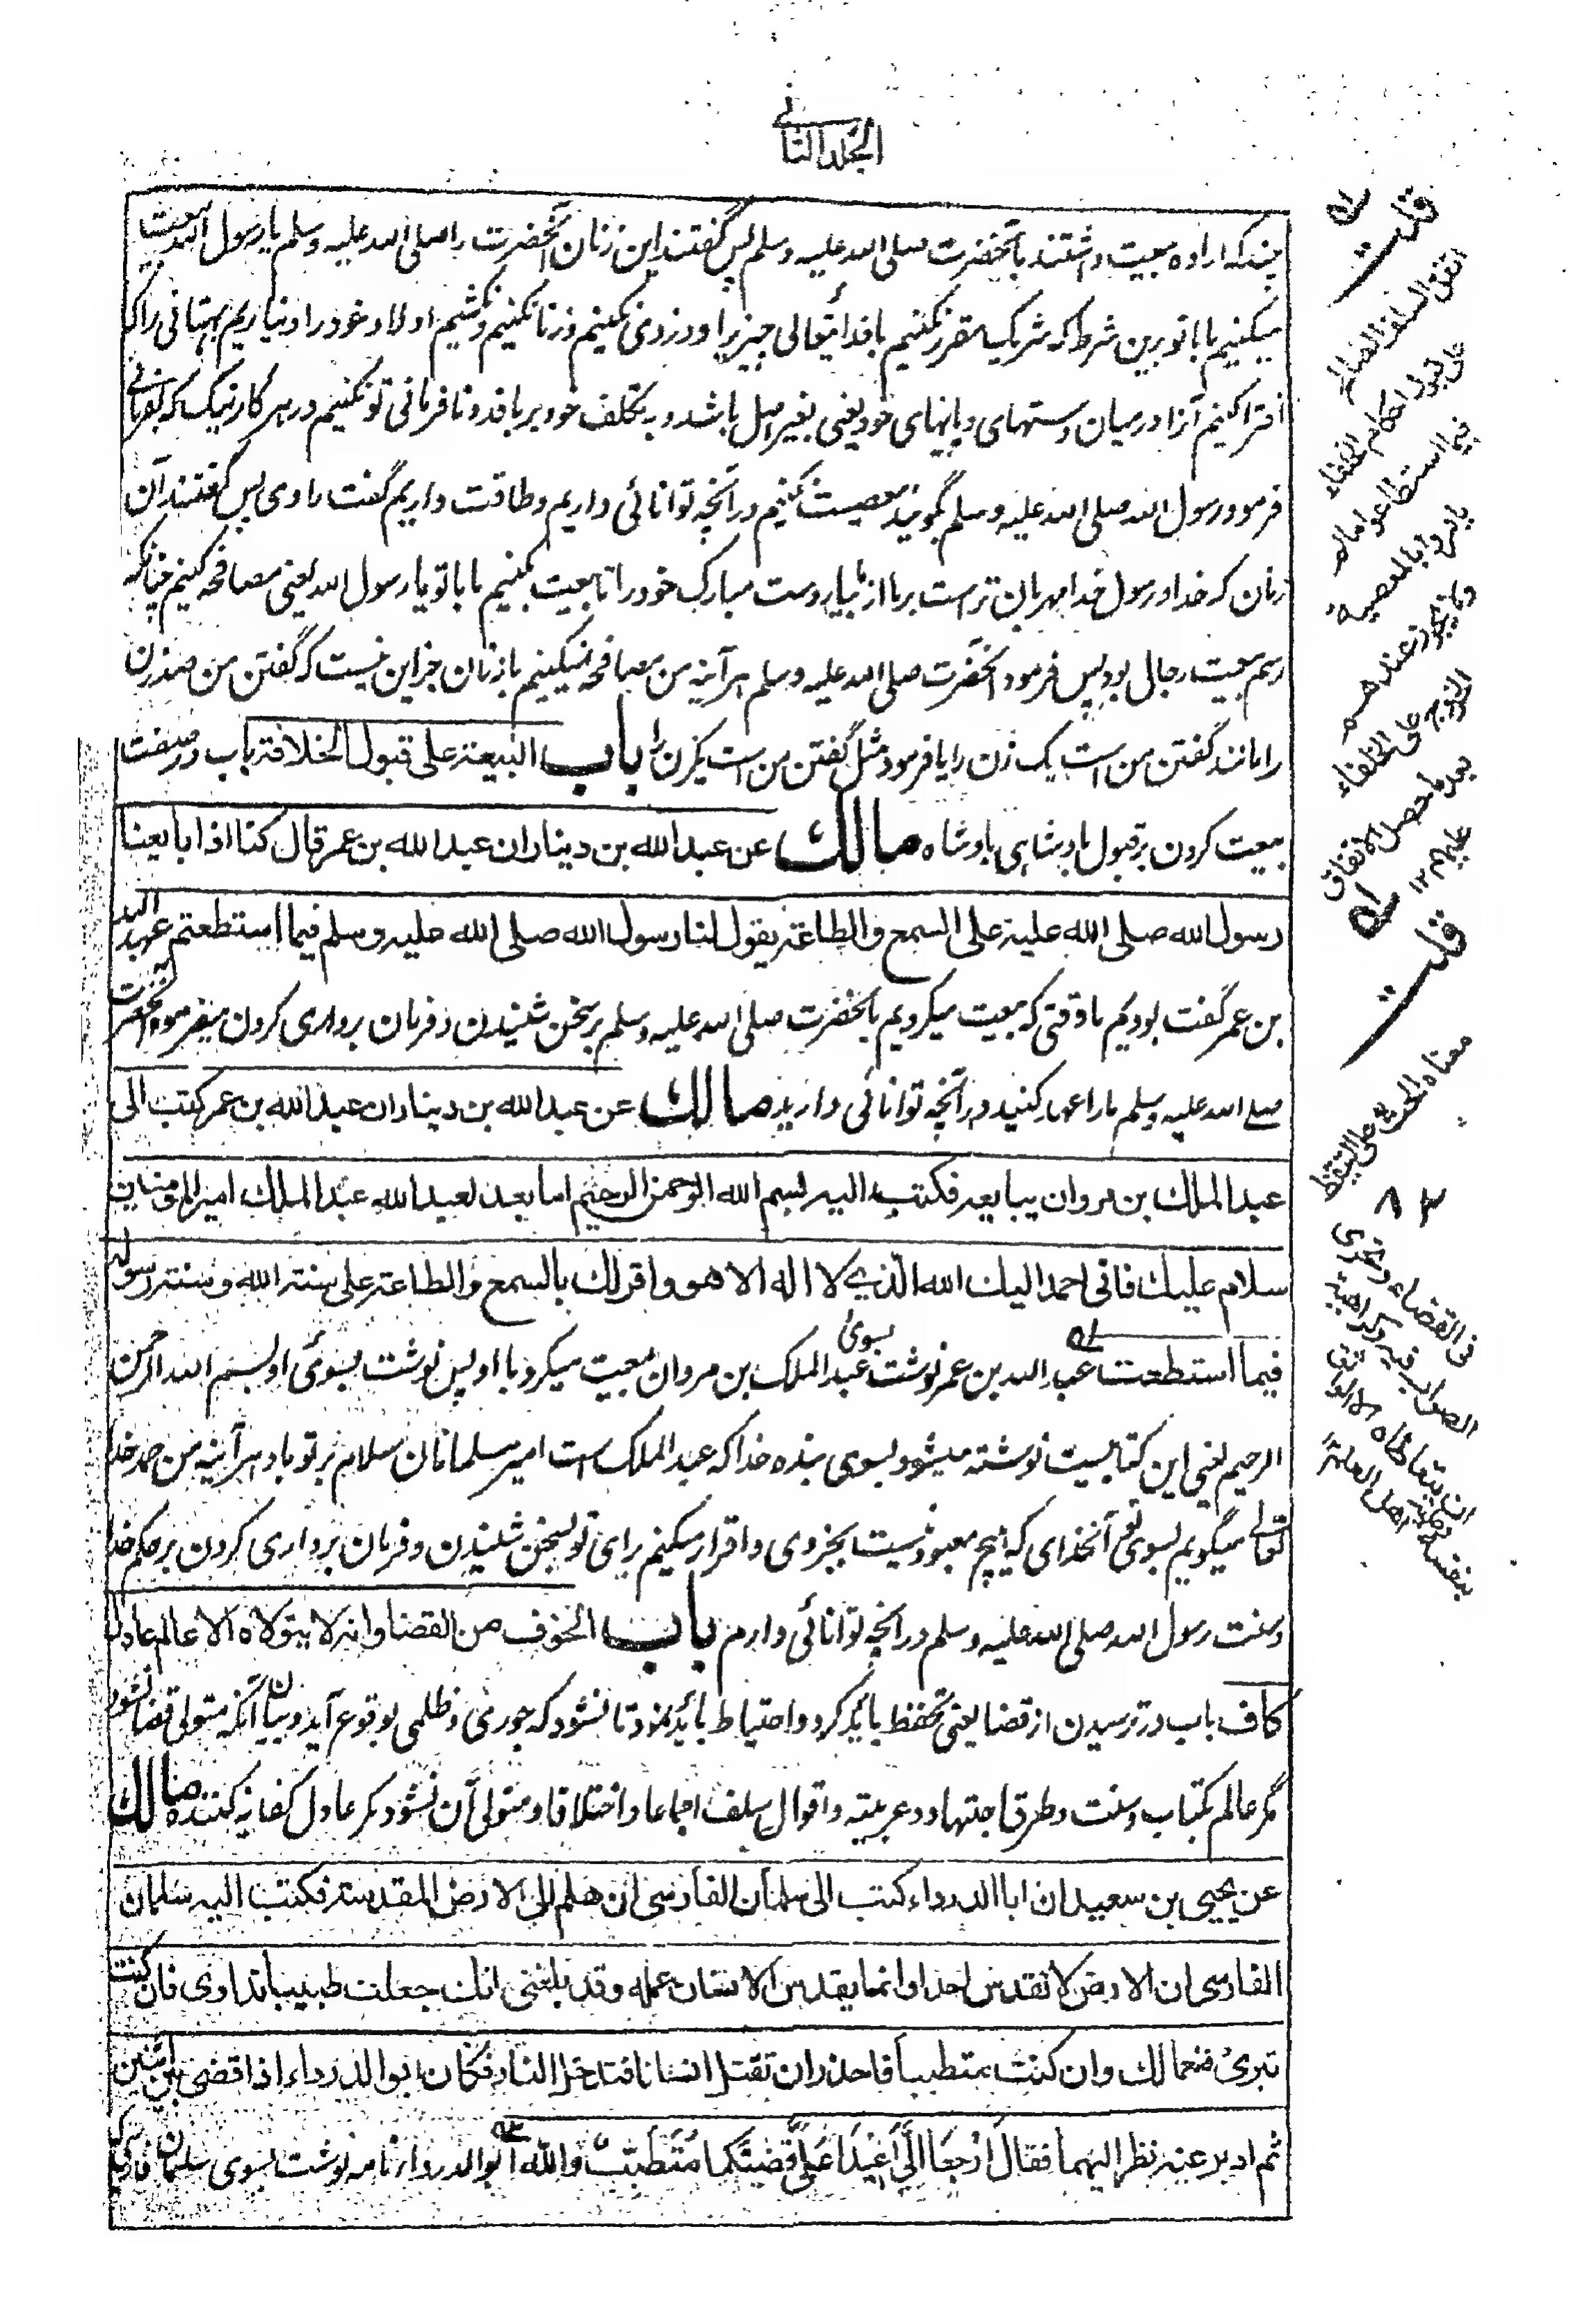 الجلد الثاني
چند که اراده بیعت داشتند بآنحضرت صلی الله علیه وسلم پس گفتند این زنان آنحضرت را صلی الله علیه وسلم یا رسول الله بیعت
میکنیم ما با تو برین شرط که شریک مقرر نکنیم با خدائیتعالی چیزیرا و دزدی نکنیم و زنا نکنیم و نکشیم اولاد خود را و نیاریم بهتانی را که
افترا کنیم آنرا درمیان دستهای و پایهای خود یعنی بغیر اصل باشد و به تکلف خود بربافد و نافرمانی تو نکنیم در هر کار نیک که بفرمائی
فرمود رسول الله صلی الله علیه وسلم بگوئید معصیت نکنیم در آنچه توانائی داریم و طاقت داریم گفت راوی پس گفتند آن
زنان که خدا و رسول خدا مهربان تراست برما از ما بیار دست مبارک خود را تا بیعت بکنیم ما با تو یا رسول الله یعنی مصافحه کنیم چنانکه
رسم بیعت رجال بود پس فرمود آنحضرت صلی الله علیه وسلم هر آینه من مصافحه نمیکنیم با زنان جز این نیست که گفتن من صد زن
را مانند گفتن من است یک زن را یا فرمود مثل گفتن من است یکزن را باب البیعة علی قبول الخلافة باب در صفت
بیعت کردن بر قبول بادشاهی بادشاه مالك عن عبد الله بن دينار ان عبد الله بن عمر قال كنا اذا بايعنا
رسول الله صلى الله عليه على السمع والطاعة يقول لنا رسول الله صلى الله عليه وسلم فيما استطعتم عبد الله
بن عمر گفت بودیم ما وقتی که بیعت میکردیم بآنحضرت صلی الله علیه وسلم بر سخن شنیدن و فرمان برداری کردن میفرمود آنحضرت
صلی الله علیه وسلم ما را عهد کنید در آنچه توانائی دارید مالك عن عبد الله بن دينار ان عبد الله بن عمر كتب الى
عبد الملك بن مروان يبايعه فكتب اليه بسم الله الرحمن الرحيم اما بعد لعبد الله عبد الملك امير المومنين
سلام عليك فانى احمد اليك الله الذي لا اله الا هو واقر لك بالسمع والطاعة على سنة الله وسنة رسوله
فيما استطعت عبد الله بن عمر نوشت بسوئ عبد الملک بن مروان بیعت میکرد با او پس نوشت بسوئ او بسم الله الرحمن
الرحیم یعنی این کتابیست نوشته میشود بسوی بنده خدا که عبد الملک است امیر مسلمانان سلام بر تو باد هر آینه من حمد خدا
تعالی میگویم بسوی تو آنخدای که هیچ معبود نیست بجز وی و اقرار میکنم برای تو بسخن شنیدن و فرمان برداری کردن بر حکم خدا
و سنت رسول الله صلی الله علیه وسلم در آنچه توانائی دارم باب الخوف من القضا وانه لا يتولاه الا عالم عادل
كاف باب در ترسیدن از قضا یعنی تحفظ باید کرد و احتیاط باید نمود تا نشود که جوری و ظلمی بوقوع آید و بیان آنکه متولی قضا نشود
مگر عالم بکتاب و سنت و طرق اجتهاد و عربیته و اقوال سلف اجماعا و اختلافا و متولی آن نشود مگر عادل کفایه کننده مالك
عن يحيى بن سعيد ان ابا الدرداء كتب الى سلمان الفارسى ان هلم الى الارض المقدسة فكتب اليه سلمان
الفارسى ان الارض لا تقدس احدا وانما يقدس الانسان عمله وقد بلغنى انك جعلت طبيبا تداوى فان كنت
تبرئ فنعما لك وان كنت متطببا فاحذر ان تقتل انسانا فتدخل النار فكان ابو الدرداء اذا قضى بين اثنين
ثم ادبر عنه نظر اليهما فقال ارجعا الي اعيدا علي قضيتكما متطبب والله ابو الدرداء نامه نوشت بسوی سلمان فارسی
قلت
اتفق السلف الصالح
على قبول احكام الخلفاء
فيما استطاعوا ما لم
يامروا بالمعصية
ولا يجوز عندهم
الخروج على الخلفاء
بعد ما حصل الاتفاق
عليهم ١٢
قلت
معناه الحث على التيقظ
فى القضاء وتحرى
الصواب فيه وكراهية
ان يتعاطاه الا الواثق
بنفسه من اهل العلم